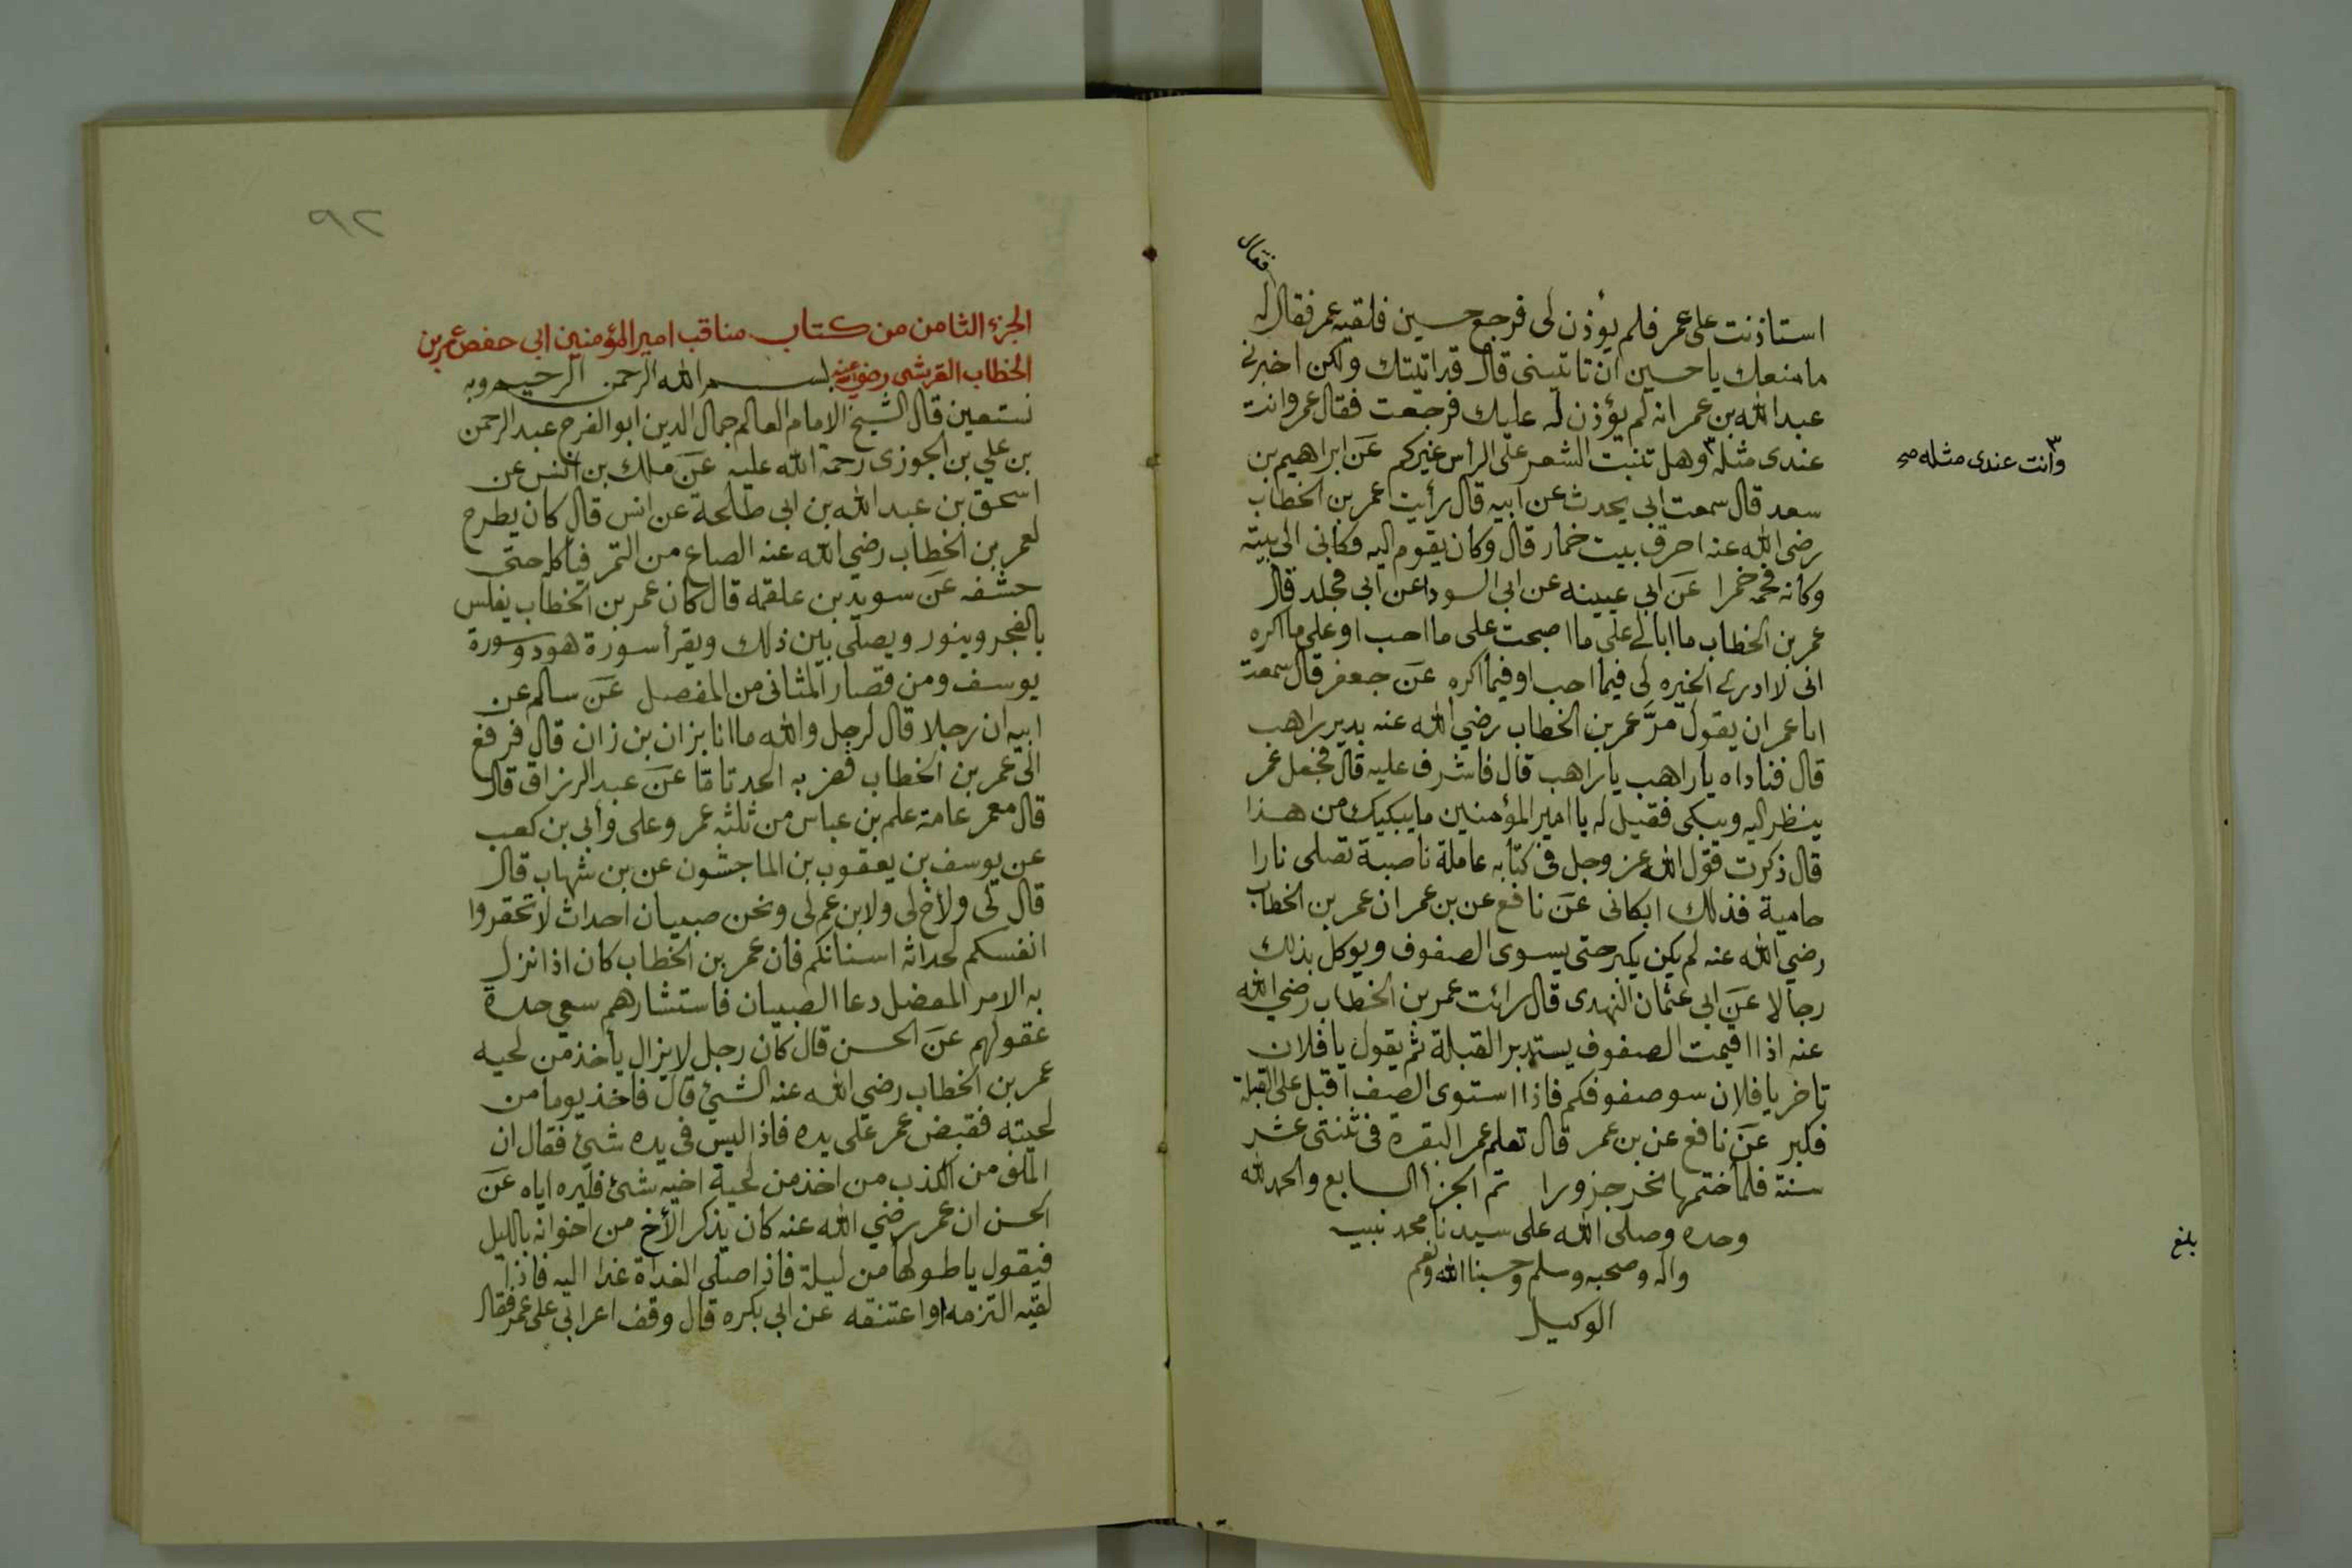 فقال
استاذنت على عمر فلم يؤذن لى فرجع حسين فلقيه عمر فقال له
ما منعك يا حسين ان تاتينى قال قد اتيتك ولكن اخبرنى
عبد الله بن عمر انه لم يؤذن له عليك فرجعت فقال عمر وانت
عندى مثله ٣ وهل تنبت الشعر على الرأس غيركم عن ابراهيم بن
٣ وأنت عندى مثله صح
سعد قال سمعت ابى يحدث عن ابيه قال رأيت عمر بن الخطاب
رضى الله عنه احرق بيت خمار قال وكان يقوم اليه وكانى الى بيته
وكانه فحمه خمرا عن ابى عيينه عن ابى السودا عن ابى مجلد قال
عمر بن الخطاب ما ابالى على ما اصبحت على ما احب او على ما اكره
انى لا ادرى الخيره لى فيما احب او فيما اكره عن جعفر قال سمعت
ابا عمران يقول مرَّ عمر بن الخطاب رضي الله عنه بدير راهب
قال فناداه يا راهب يا راهب قال فاشرف عليه قال فجعل عمر
ينظر اليه ويبكى فقيل له يا امير المؤمنين ما يبكيك من هذا
قال ذكرت قول الله عز وجل فى كتابه عاملة ناصبة تصلى نارا
حامية فذلك ابكانى عن نافع عن بن عمر ان عمر بن الخطاب
رضي الله عنه لم يكن يكبر حتى يسوى الصفوف ويوكل بذلك
رجالا عن ابى عثمان النهدى قال رائت عمر بن الخطاب رضي الله
عنه اذا اقيمت الصفوف يستدبر القبلة ثم يقول يا فلان
تاخر يا فلان سو صفوفكم فاذا استوى الصف اقبل على القبلة
فكبر عن نافع عن بن عمر قال تعلم عمر البقرة فى ثنتى عشر
سنة فلما ختمها نحر جزورا تم الجزأ السابع والحمد لله
وحده وصلى الله على سيدنا محمد نبيه
واله وصحبه وسلم وحسبنا الله ونعم
الوكيل
بلغ
٩٢
الجزء الثامن من كتاب مناقب امير المؤمنين ابى حفص عمر بن
الخطاب القرشى رضي الله عنه بسم الله الرحمن الرحيم وبه
نستعين قال الشيخ الامام العالم جمال الدين ابو الفرج عبد الرحمن
بن علي بن الجوزى رحمة الله عليه عن ملك بن انس عن
اسحق بن عبد الله بن ابى طلحة عن انس قال كان يطرح
لعمر بن الخطاب رضي الله عنه الصاع من التمر فياكله حتى
حشفه عن سويد بن علقمة قال كان عمر بن الخطاب يغلس
بالفجر وينور ويصلى بين ذلك ويقرأ سورة هود وسورة
يوسف ومن قصار المثانى من المفصل عن سالم عن
ابيه ان رجلا قال لرجل والله ما انا بزان بن زان قال فرفع
الى عمر بن الخطاب فضربه الحد تامّا عن عبد الرزاق قال
قال معمر عامة علم بن عباس من ثلثه عمر وعلى وأبى بن كعب
عن يوسف بن يعقوب بن الماجشون عن بن شهاب قال
قال لى ولأخ لى ولابن عم لى ونحن صبيان احداث لا تحقروا
انفسكم لحداثه اسنانكم فان عمر بن الخطاب كان اذا نزل
به الامر المعضل دعا الصبيان فاستشارهم سعي حدة
عقولهم عن الحسن قال كان رجل لا يزال يأخذ من لحيه
عمر بن الخطاب رضي الله عنه الشئ قال فاخذ يوما من
لحيته فقبض عمر على يده فاذا ليس فى يده شئ فقال ان
الملق من الكذب من اخذ من لحية اخيه شئ فليره اياه عن
الحسن ان عمر رضي الله عنه كان يذكر الأخ من اخوانه بالليل
فيقول يا طولها من ليلة فاذا صلى الغداة غدا اليه فاذا
لقيه التزمه او اعتنقه عن ابى بكره قال وقف اعرابي على عمر فقال